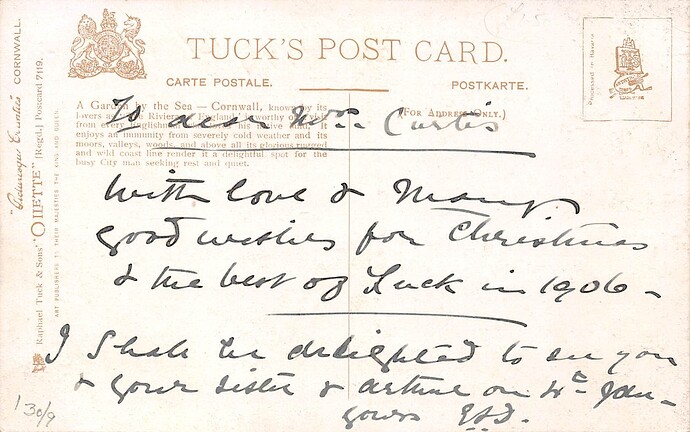 TUCK'S POST CARD.
CARTE POSTALE.
POSTKARTE.
(For Address Only.)
A Garden by the Sea — Cornwall, known by its
lovers as the Riviera of England, is worthy of a visit
from every Englishman his native land. It
enjoys an immunity from severely cold weather and its
moors, valleys, woods, and above all its glorious rugged
and wild coast line render it a delightful spot for the
busy City man seeking rest and quiet.
"Picturesque Counties" CORNWALL.
Raphael Tuck & Sons' "OILETTE" [Regd.] Postcard 7119.
ART PUBLISHERS TO THEIR MAJESTIES THE KING AND QUEEN.
Processed in Bavaria
To dear Mrs. Curtis
With love & Many
good wishes for Christmas
& the best of Luck in 1906 –
I Shall be delighted to see you
& your sister & Arthur on 4th Jan–
yours
1 30/9